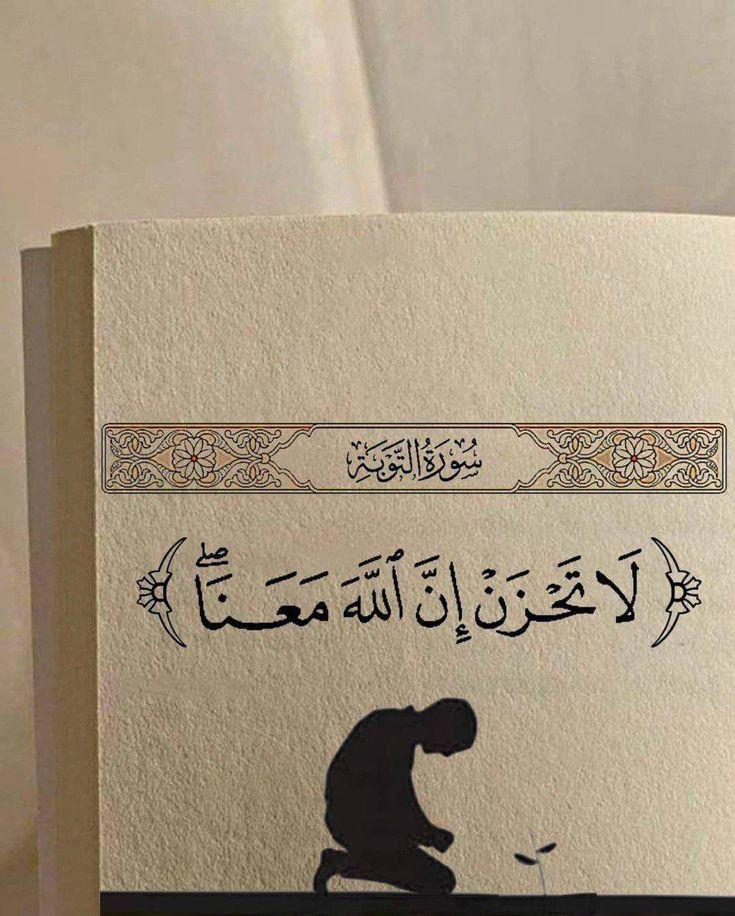 سُورَةُ التَّوۡبَةِ
﴿لَا تَحۡزَنۡ إِنَّ ٱللَّهَ مَعَنَاۖ﴾